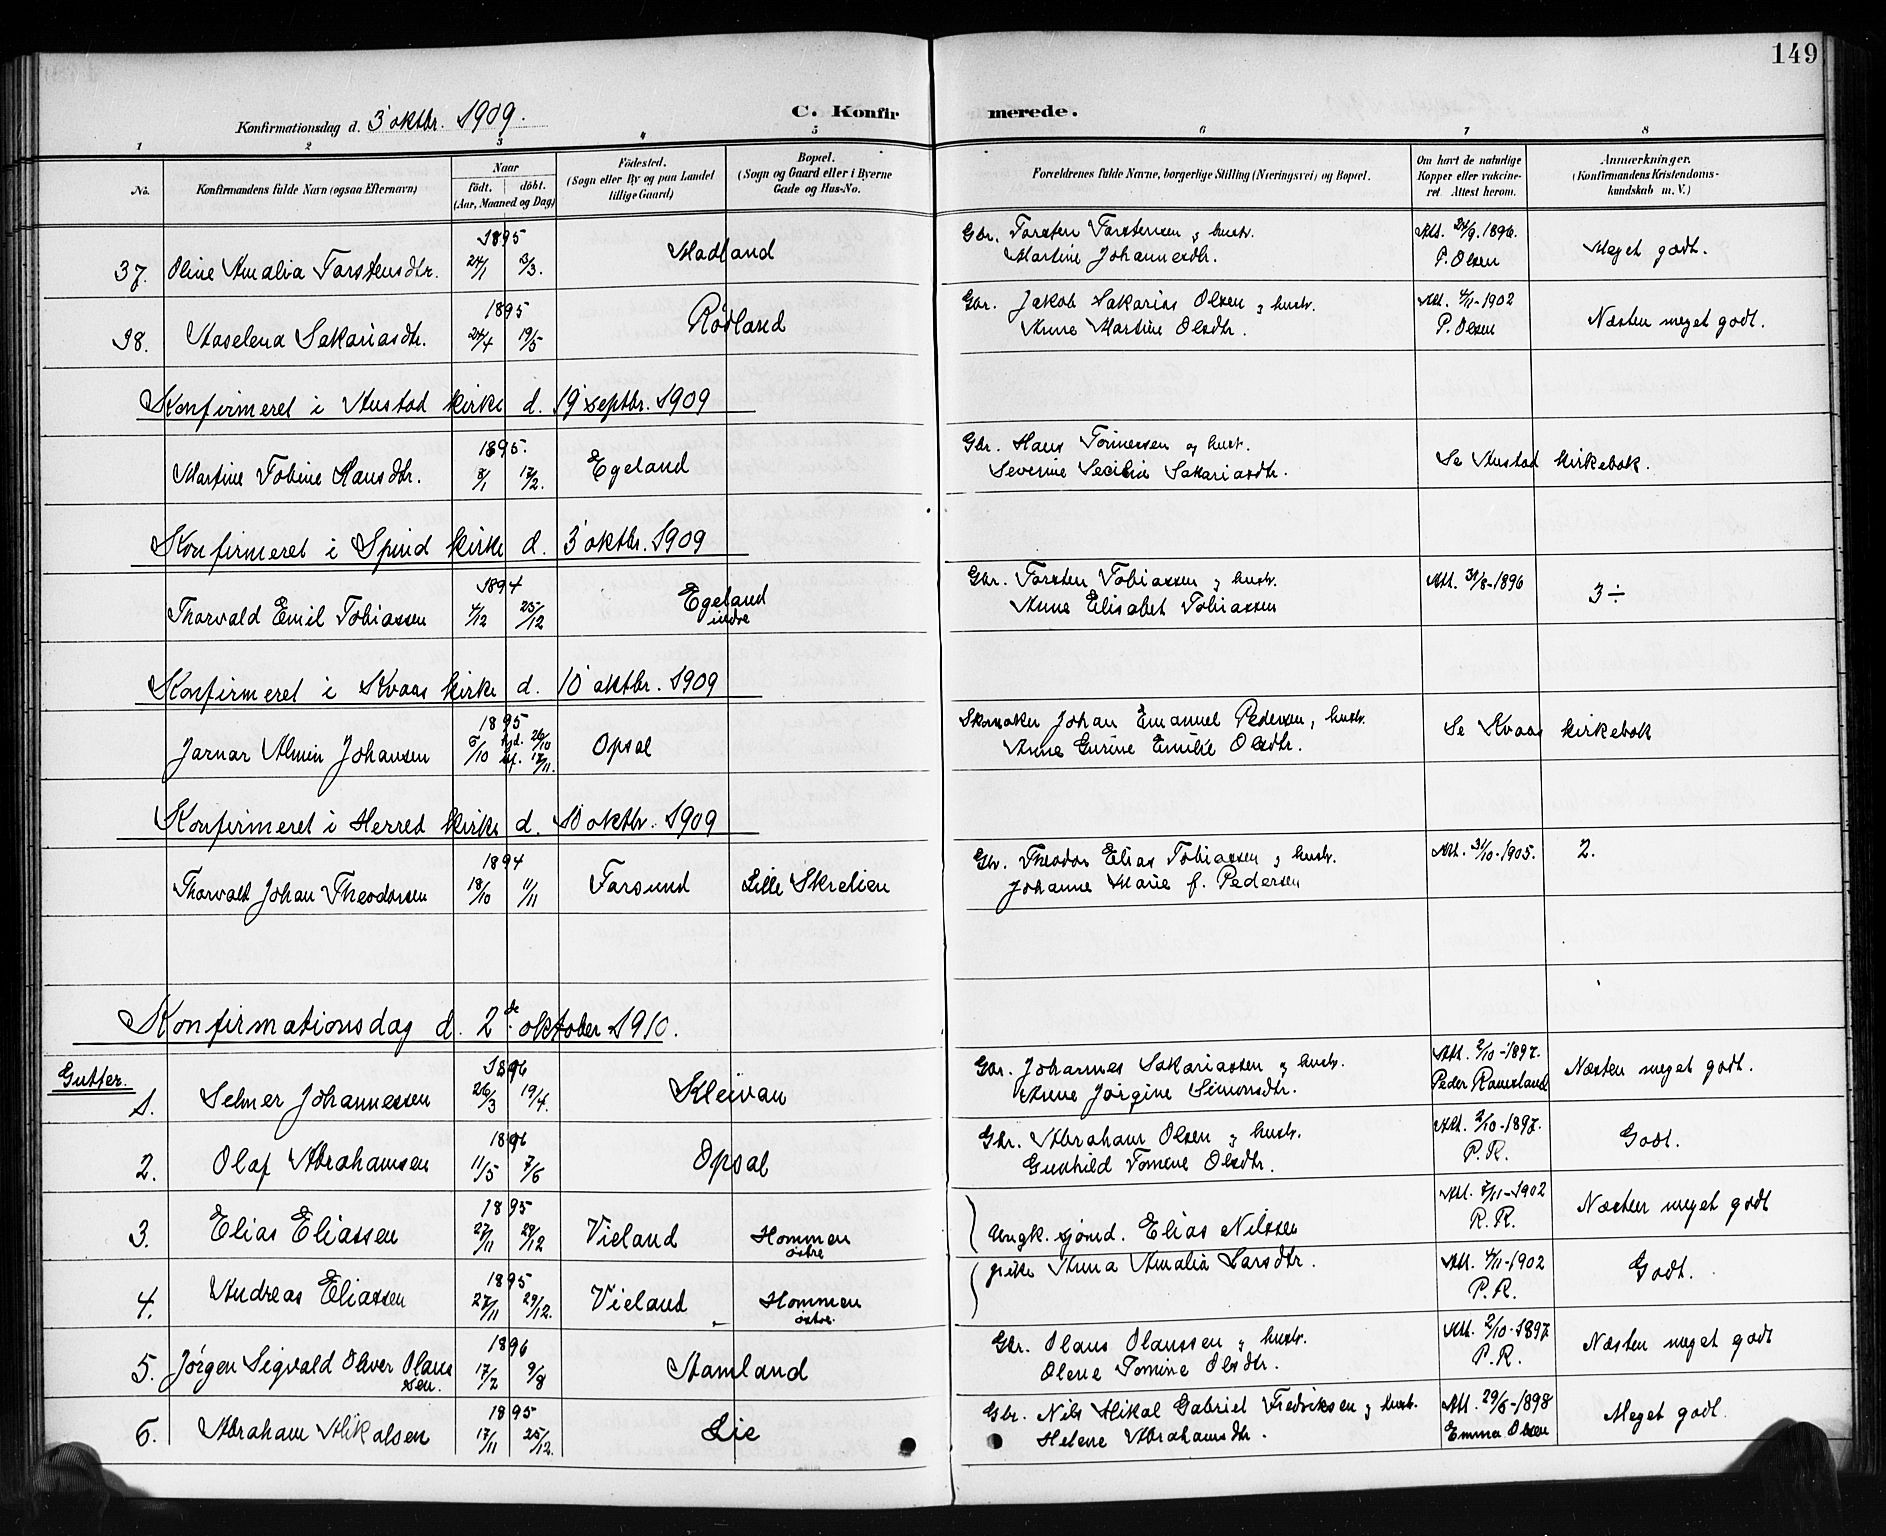 149
Konfirmationsdag d. 3 oktbr. 1909.
C. Konfirmerede.
1 2 3 4 5 6 7 8
No.
Konfirmandens fulde Navn (ogsaa Efternavn)
Naar
født. døbt.
(Aar, Maaned og Dag)
Fødested.
(Sogn eller By og paa Landet
tillige Gaard)
Bopæl.
(Sogn og Gaard eller i Byerne
Gade og Hus-No.
Forældrenes fulde Navne, borgerlige Stilling (Næringsvei) og Bopæl.
Om havt de naturlige
Kopper eller vakcine-
ret. Attest herom.
Anmærkninger.
(Konfirmandens Kristendoms-
kundskab m. V.)
37. Oline Amalia Torstensdtr. 1895 24/1 3/3. Madland
Gbr. Torsten Torstensen og hustr.
Martine Johannesdtr.
Att. 24/9. 1896.
P. Olsen
Meget godt.
38. Aaselena Sakariasdtr. 1895 24/4 19/5 Rødland
Gbr. Jakob Sakarias Olsen og hustr.
Anne Martine Olsdtr.
Att. 4/11-1902
P. Olsen
Næsten meget godt.
Konfirmeret i Austad kirke d. 19 septbr. 1909
Martine Tobine Hansdtr. 1895. 8/1 17/2. Egeland
Gbr. Hans Tønnessen og hustr.
Severine Secilia Sakariasdtr.
Se Austad kirkebok.
Konfirmeret i Spind kirke d. 3 oktbr. 1909
Thorvald Emil Tobiassen 1894 4/12 25/12 Egeland
indre
Gbr. Torsten Tobiassen og hustr.
Anne Elisabet Tobiassen
Att. 31/8-1896
3÷
Konfirmeret i Kvaas kirke d. 10 oktbr. 1909
Jarnar Almin Johansen 1895 6/10 hjd. 26/10 17/11. Opsal
Skomaker Johan Emanuel Pedersen, hustr.
Anne Gurine Emilie Olsdtr.
Se Kvaas kirkebok
Konfirmeret i Herred kirke d. 10 oktbr. 1909
Thorvald Johan Theodorsen 1894 18/10 11/11 Farsund Lille Skrelien
Gbr. Theodor Elias Tobiassen og hustr.
Johanne Marie f. Pedersen
Att. 31/10-1905.
2.
Konfirmationsdag d. 2de oktober 1910.
Gutter.
1. Selmer Johannessen 1896 26/3 19/4. Kleivan
Gbr. Johannes Sakariassen og hustr.
Anne Jørgine Simonsdtr.
Att. 2/10-1897.
Peder Rouesland
Næsten meget godt.
2. Olaf Abrahamsen 1896 11/5 7/6 Opsal
Gbr. Abraham Olsen og hustr.
Gunhild Tomine Olsdtr.
Att. 2/10-1897.
P. R.
Godt.
3. Elias Eliassen 1895 27/11 29/12 Vieland Hommen
østre
Ungk. sjømd. Elias Nilssen
Att. 4/11-1902
R. R.
Næsten meget godt
4. Andreas Eliassen 1895 27/11 29/12. Vieland Hommen
østre.
pike Anna Amalia Larsdtr.
Att. 4/11-1902
P. R.
Godt.
5. Jørgen Sigvald Oliver Olaus
sen. 1896 17/2 9/8 Stamland
Gbr. Olaus Olaussen og hustr.
Olene Tomine Olsdtr.
Att. 2/10-1897
P. R.
Næsten meget godt
6. Abraham Mikalsen 1895 17/11 25/12. Lie
Gbr. Nils Mikal Gabriel Fredriksen og hustr.
Helene Abrahamsdtr.
Att. 29/6-1898
Emma Olsen
Meget godt.